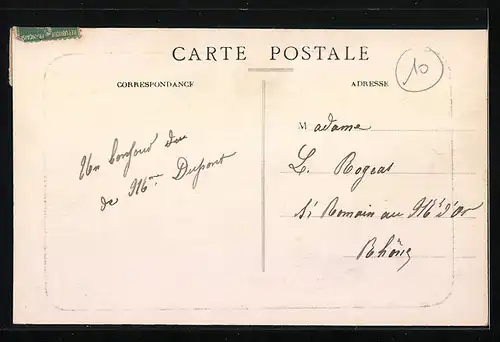 RÉPUBLIQUE FRANÇAISE
CARTE POSTALE
10
CORRESPONDANCE
ADRESSE
Un bonjour du
de Mme Dupont
Madame
L. Rogeat
St Romain au Mt d'Or
Rhône